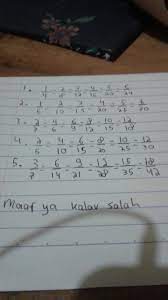 1. 1/4 = 2/8 = 3/12 = 4/16 = 5/20 = 6/24
2. 1/5 = 2/10 = 3/15 = 4/20 = 5/25 = 6/30
3. 2/3 = 4/6 = 6/9 = 8/12 = 10/15 = 12/18
4. 2/5 = 4/10 = 6/15 = 8/20 = 10/25 = 12/30
5. 3/7 = 6/14 = 9/21 = 12/28 = 15/35 = 18/42
Maaf ya kalau salah